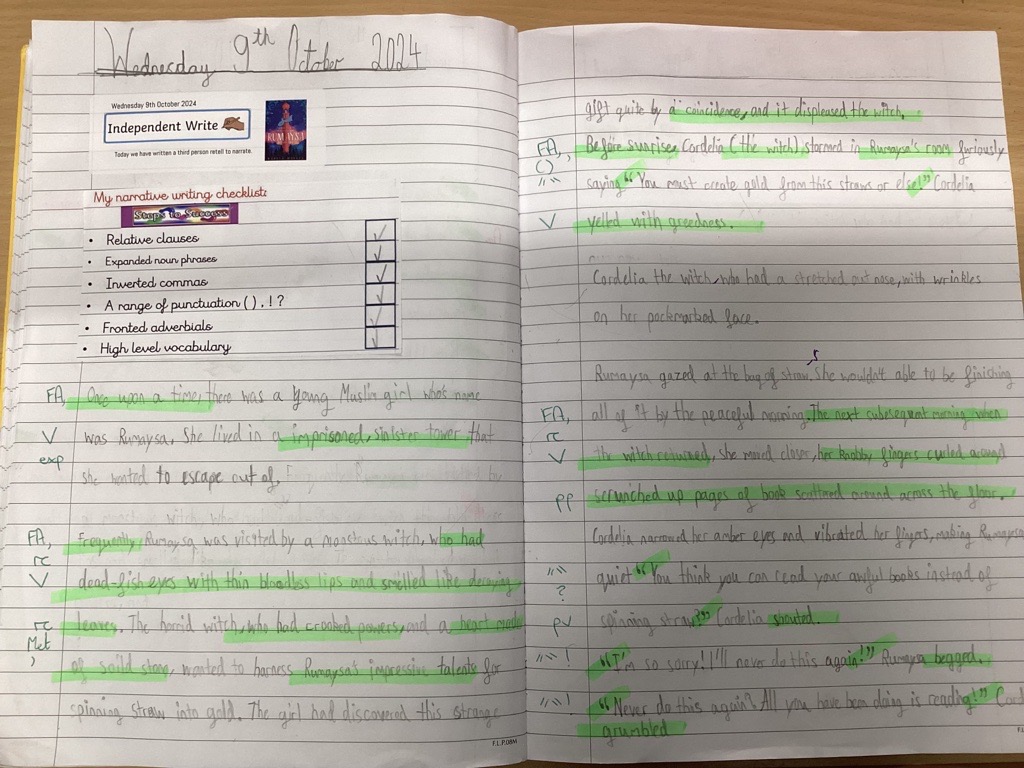 Wednesday 9th October 2024
Wednesday 9th October 2024
Independent Write
RUMAYSA
Today we have written a third person retell to narrate.
My narrative writing checklist:
Steps to Success
• Relative clauses
• Expanded noun phrases
• Inverted commas
• A range of punctuation ( ) . ! ?
• Fronted adverbials
• High level vocabulary
FA, Once upon a time, there was a young Muslim girl who's name
V was Rumaysa. She lived in a imprisoned, sinister tower that
exp she wanted to escape out of.
FA, Frequently, Rumaysa was visited by a monstous witch, who had
rc
V dead-fish eyes with thin bloodless lips and smelled like decaying
rc leaves. The horrid witch, who had crooked powers, and a heart made
Met
, of soild stone, wanted to harness Rumaysa's impressive talents for
spinning straw into gold. The girl had discovered this strange
F.L.P.DBM
gift quite by a coincidence, and it displeased the witch.
FA, , Before sunrise, Cordelia (the witch), stormed in Rumaysa's room furiously
()
"" saying "You must create gold from this straws or else!" Cordelia
V yelled with greedness.
Cordelia the witch, who had a stretched out nose, with wrinkles
on her pockmarked face.
Rumaysa gazed at the bag of straw. She wouldn't able to be finiching
FA, all of it by the peaceful morning. The next subsequent morning when
rc
V the witch returned, she moved closer, her knobby fingers curled around
pp scrunched up pages of book scattered around across the floor.
Cordelia narrowed her amber eyes and vibrated her fingers, making Rumaysa
"" quiet "You think you can read your awful books instead of
?
pv spinning straw?" Cordelia shouted.
"" ! "I'm so sorry! I'll never do this again!" Rumaysa begged.
"" ! "Never do this again? All you have been doing is reading!" Cord
grumbled
F.L